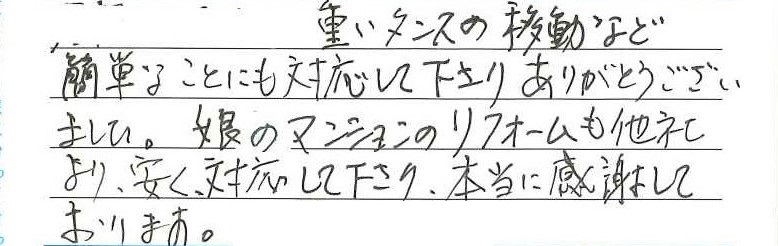 重いタンスの移動など
簡単なことにも対応して下さりありがとうござい
ました。娘のマンションのリフォームも他社
より、安く、対応して下さり、本当に感謝して
おります。